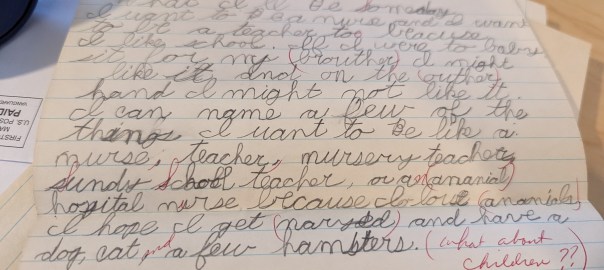 What I'll Be Someday
I want to be a nurse and I want
to be a teacher too because
I like school. If I were to baby
sit for my (brouther) I might
like it and on the (outher)
hand I might not like it.
I can name a few of the
things I want to be like a
nurse, teacher, nursery teacher,
sundy school teacher, or a(n)(ananial)
hospital nurse because I love (ananials)
I hope I get (narved) and have a
dog, cat, and a few hamsters. (What about
children??)
FIRST
U.S. POS
PAID